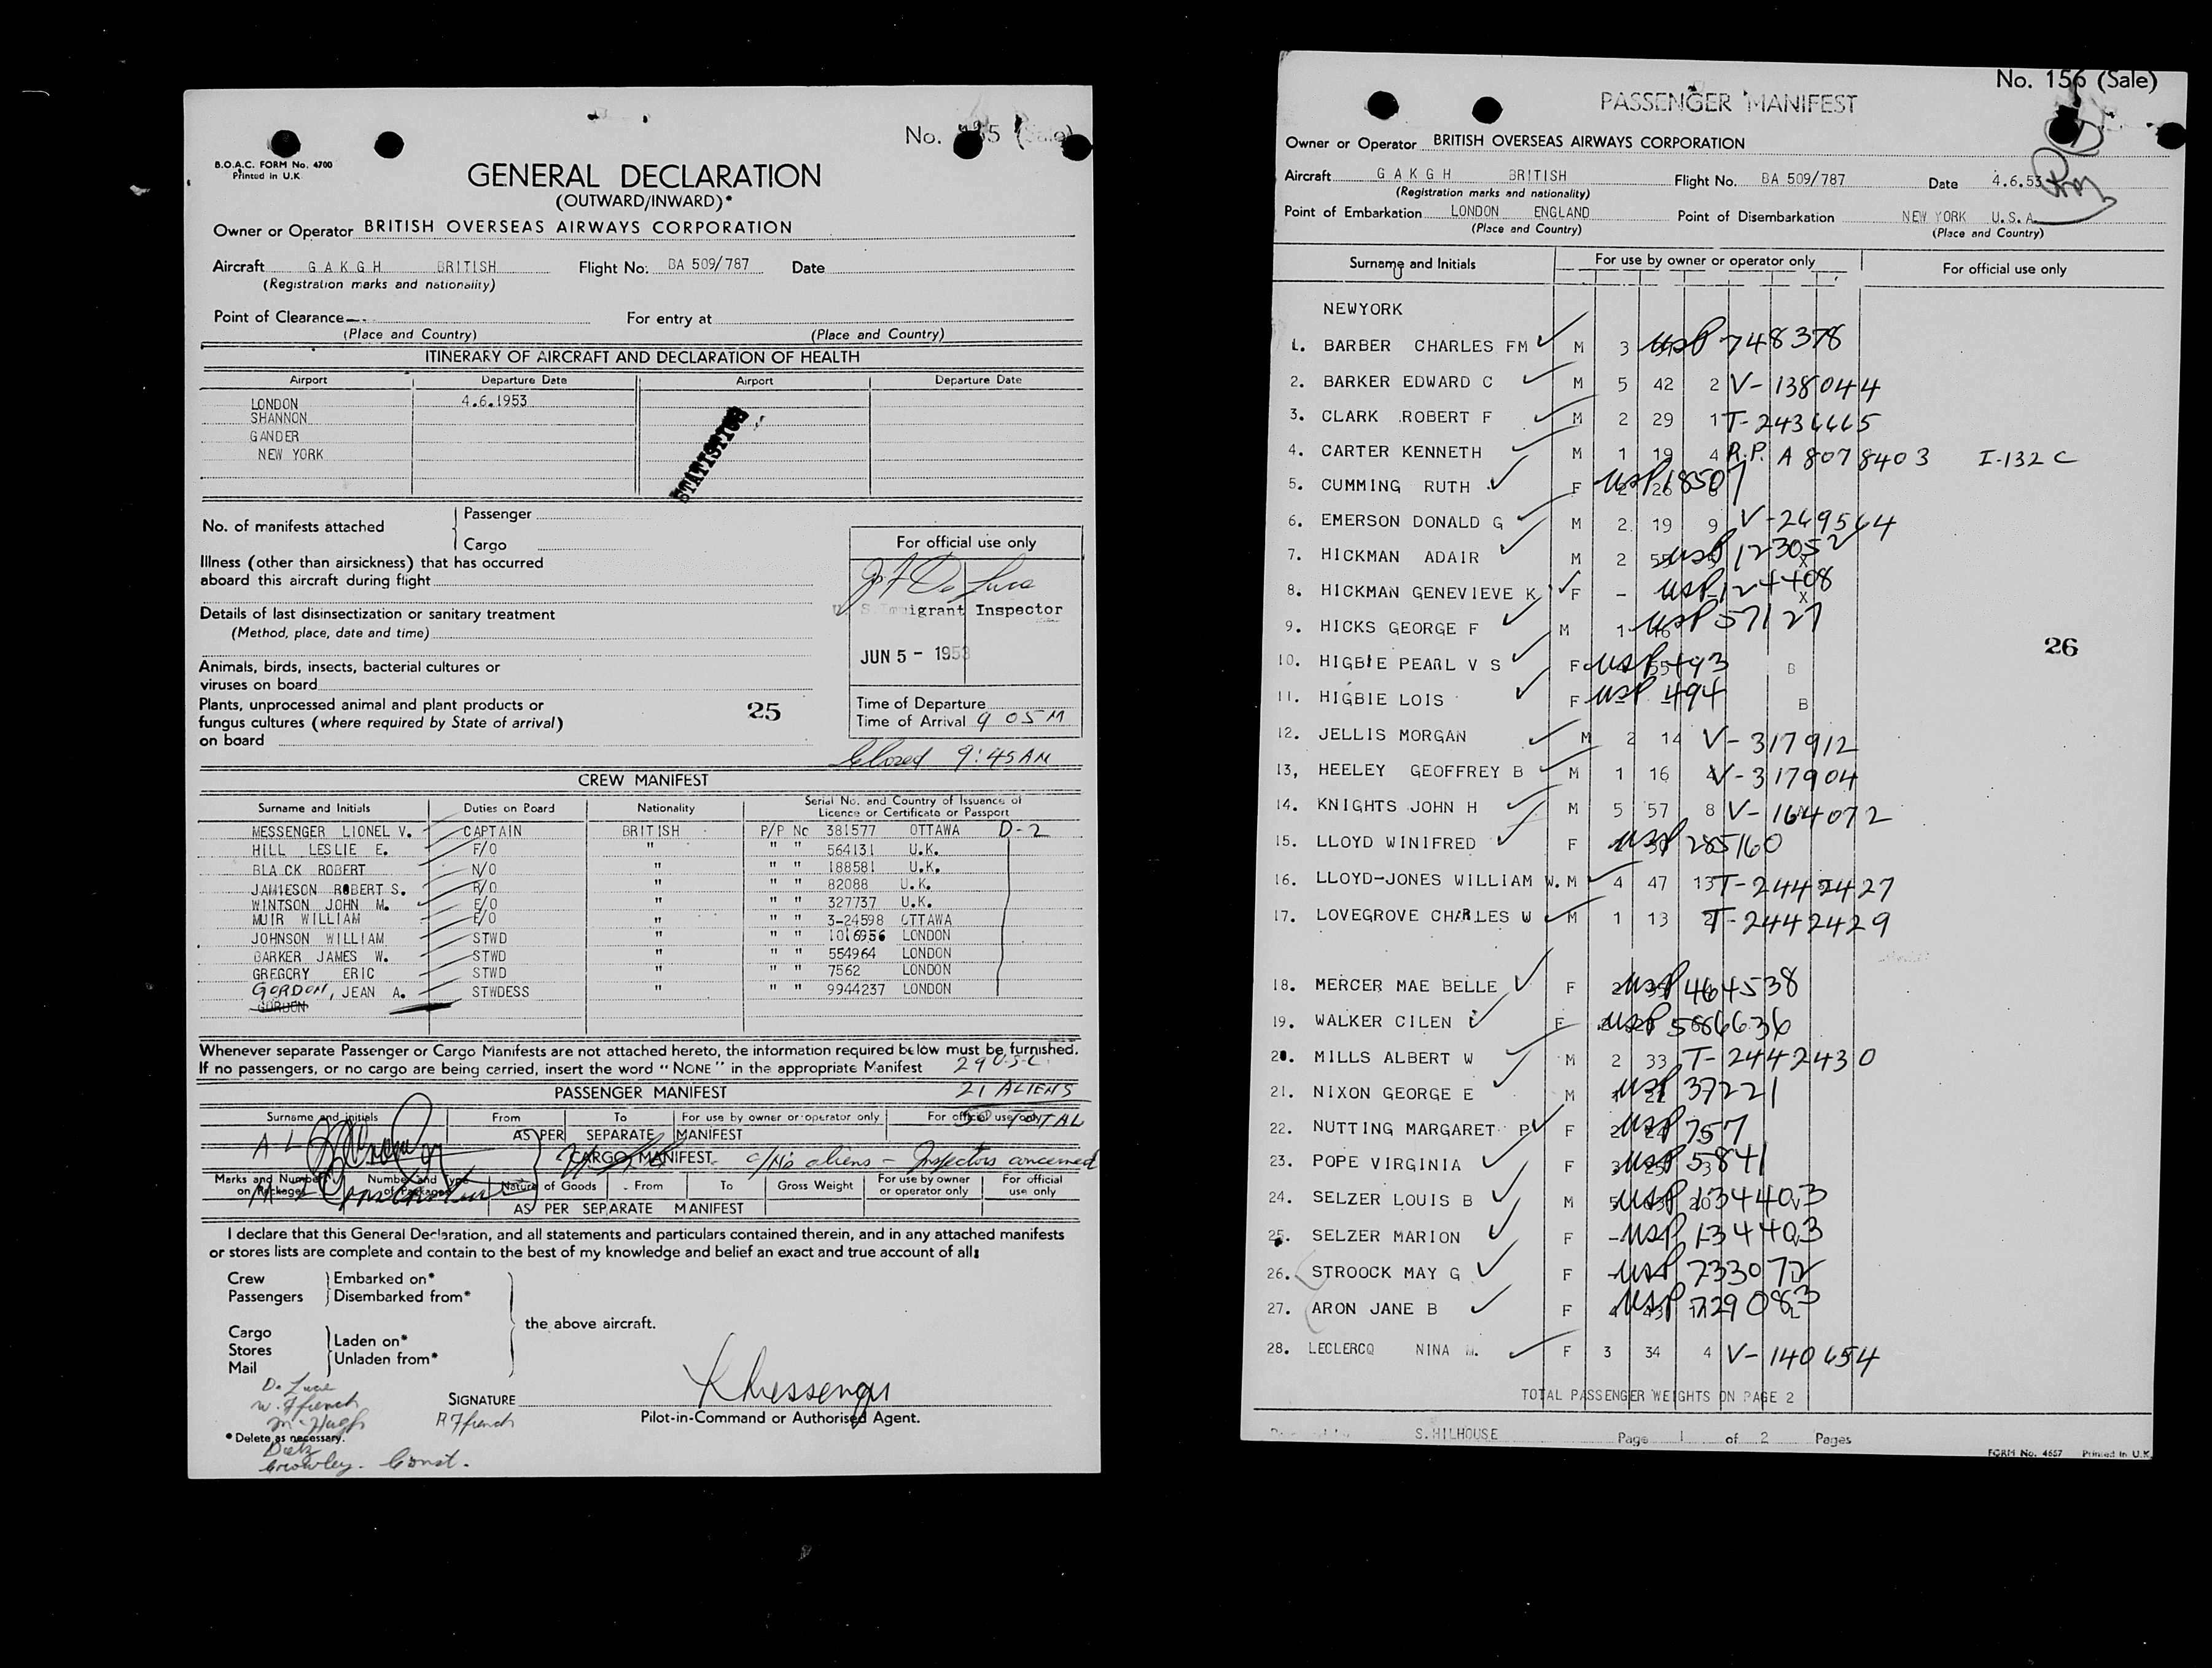 No. 5
B.O.A.C. FORM No. 4700
Printed in U.K.
GENERAL DECLARATION
(OUTWARD/INWARD)*
Owner or Operator BRITISH OVERSEAS AIRWAYS CORPORATION
Aircraft G A K G H BRITISH Flight No. BA 509/787 Date
(Registration marks and nationality)
Point of Clearance For entry at
(Place and Country) (Place and Country)
ITINERARY OF AIRCRAFT AND DECLARATION OF HEALTH
Airport Departure Date Airport Departure Date
LONDON 4.6.1953
SHANNON
GANDER
NEW YORK
STATISTICS
No. of manifests attached Passenger
Cargo
For official use only
Illness (other than airsickness) that has occurred
aboard this aircraft during flight
Details of last disinsectization or sanitary treatment
(Method, place, date and time)
U S Immigrant Inspector
JUN 5 - 1953
Animals, birds, insects, bacterial cultures or
viruses on board
Plants, unprocessed animal and plant products or
fungus cultures (where required by State of arrival)
on board
25
Time of Departure
Time of Arrival 9 05 M
Closed 9:45 AM
CREW MANIFEST
Surname and Initials Duties on Board Nationality Serial No. and Country of Issuance of Licence or Certificate or Passport
MESSENGER LIONEL V. CAPTAIN BRITISH P/P No 381577 OTTAWA D-2
HILL LESLIE E. F/O " " " 564131 U.K.
BLACK ROBERT N/O " " " 188581 U.K.
JAMIESON ROBERT S. R/O " " " 82088 U.K.
WINTSON JOHN M. E/O " " " 327737 U.K.
MUIR WILLIAM E/O " " " 3-24598 OTTAWA
JOHNSON WILLIAM STWD " " " 1016956 LONDON
BARKER JAMES W. STWD " " " 554964 LONDON
GREGORY ERIC STWD " " " 7562 LONDON
GORDON, JEAN A. STWDESS " " " 9944237 LONDON
GORDON
Whenever separate Passenger or Cargo Manifests are not attached hereto, the information required below must be furnished.
If no passengers, or no cargo are being carried, insert the word "NONE" in the appropriate Manifest 29 U.S.C.
PASSENGER MANIFEST 21 ALIENS
Surname and initials From To For use by owner or operator only For official use only 50 TOTAL
AS PER SEPARATE MANIFEST
CARGO MANIFEST aliens – Inspectors concerned
Marks and Numbers on Packages Number and Type of Packages Nature of Goods From To Gross Weight For use by owner or operator only For official use only
AS PER SEPARATE MANIFEST
I declare that this General Declaration, and all statements and particulars contained therein, and in any attached manifests
or stores lists are complete and contain to the best of my knowledge and belief an exact and true account of all:
Crew Embarked on*
Passengers Disembarked from*
the above aircraft.
Cargo
Stores Laden on*
Mail Unladen from*
De Luca
W. Ffrench
McHugh
SIGNATURE
R Ffrench
Pilot-in-Command or Authorised Agent.
* Delete as necessary.
Dietz
Crowley. Const.
No. 156 (Sale)
PASSENGER MANIFEST
Owner or Operator BRITISH OVERSEAS AIRWAYS CORPORATION
Aircraft G A K G H BRITISH Flight No. BA 509/787 Date 4.6.53
(Registration marks and nationality)
Point of Embarkation LONDON ENGLAND Point of Disembarkation NEW YORK U.S.A.
(Place and Country) (Place and Country)
Surname and Initials For use by owner or operator only For official use only
NEWYORK
1. BARBER CHARLES FM M 3 USP 748378
2. BARKER EDWARD C M 5 42 2 V-138044
3. CLARK ROBERT F M 2 29 1 T-2436665
4. CARTER KENNETH M 1 19 4 R.P. A 8078403 I-132 C
5. CUMMING RUTH F USP 18507
6. EMERSON DONALD G M 2 19 9 V-269564
7. HICKMAN ADAIR M 2 55 USP 123052 X
8. HICKMAN GENEVIEVE K F - USP 124408 X
9. HICKS GEORGE F M 1 16 USP 57127
10. HIGBIE PEARL V S F USP 55493 B
11. HIGBIE LOIS F USP 494 B
12. JELLIS MORGAN M 2 14 V-317912
13, HEELEY GEOFFREY B M 1 16 4 V-317904
14. KNIGHTS JOHN H M 5 57 8 V-164072
15. LLOYD WINIFRED F USP 285160
16. LLOYD-JONES WILLIAM W. M 4 47 13 T-2442427
17. LOVEGROVE CHARLES W M 1 13 2 T-2442429
18. MERCER MAE BELLE F USP 464538
19. WALKER CILEN F USP 586636
20. MILLS ALBERT W M 2 33 T-2442430
21. NIXON GEORGE E M USP 37221
22. NUTTING MARGARET P F USP 757
23. POPE VIRGINIA F USP 5841
24. SELZER LOUIS B M USP 134403
25. SELZER MARION F - USP 134403
26. STROOCK MAY G F - USP 233072
27. ARON JANE B F USP 129083
28. LECLERCQ NINA M. F 3 34 4 V-140654
26
TOTAL PASSENGER WEIGHTS ON PAGE 2
S.HILHOUSE Page 1 of 2 Pages
FORM No. 4657 Printed in U.K.